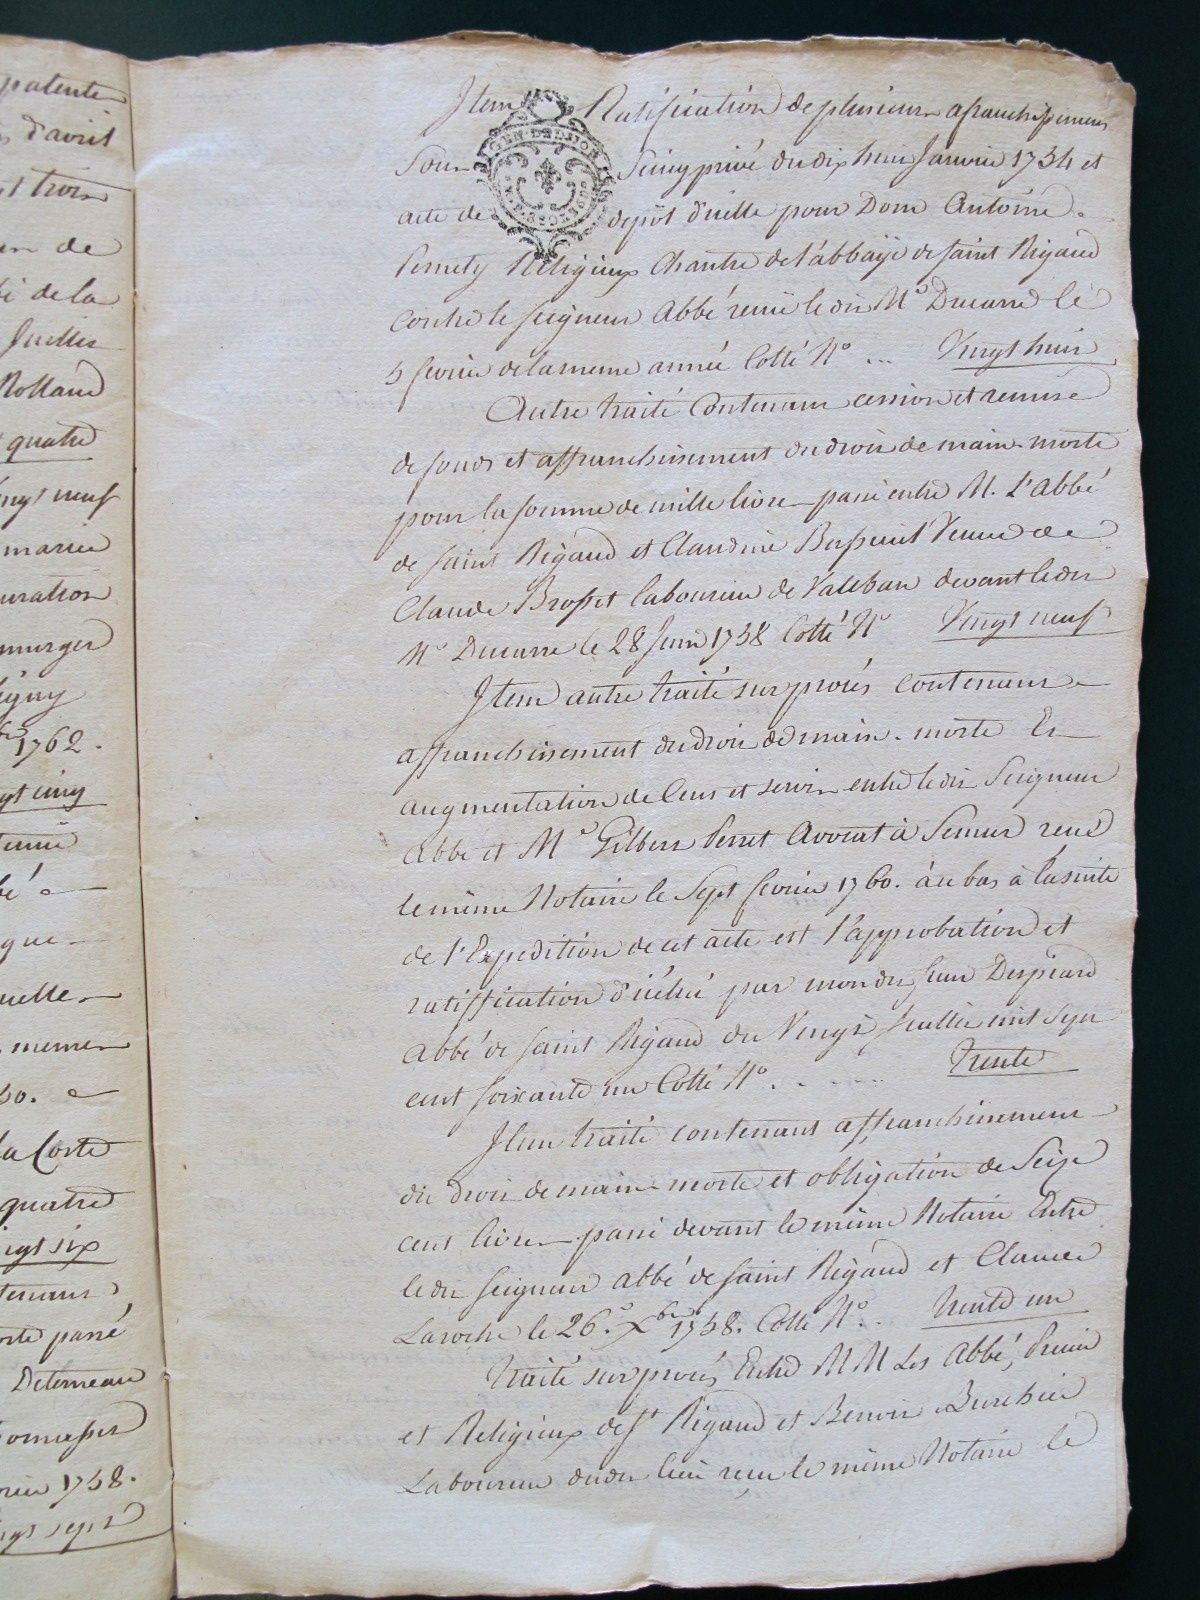 patente
d'avril
st trois
un de
de la
Juillet
Rolland
quatre
ingt neuf
mariée
uration
murger
igny
bre 1762.
gt cinq
bé
que
uelle
memes
60.
La Coste
quatre
ingt six
tenans
orte passé
Deterneau
vrier 1758.
ingt sept
Item Ratification de plusieurs afranchissemens
Sous Seing privé du dix huit Janvier 1754 et
acte de depôt d'icelle pour Dom Antoine
Pernety Religieux Chantre de l'abbaÿe de saint Rigaud
contre le seigneur Abbé reçu le dit Me Ducarre le
5 fevrier de la meme année Cotté No ... Vingt huit
Autre traité Contenant cession et remise
de fonds et affranchissement du droit de main-morte
pour la somme de mille livres passé entre M. L'abbé
de saint Rigaud et Claudine Veuve de
Claude Brosset laboureur de Valeban devant le dit
Me Ducarre le 28 Juin 1758 Cotté No Vingt neuf
Item autre traité sur procés contenant
affranchissement du droit de main-morte Et
augmentation de Cens et servis entre le dit Seigneur
Abbé et Me Gilbert Perret Avocat à Semur reçu
le même Notaire le Sept fevrier 1760. au bas à la suite
de l'Expedition de cet acte est l'approbation et
ratiffication d'icelui par mondit Jean Despiard
Abbé de saint Rigaud du Vingt Juillet mil sept
cent soixante un Cotté No. . ..... Trente
Item traité contenant affranchissement
du droit de main-morte et obligation de Seize
cent livres passé devant le même Notaire Entre
le dit seigneur abbé de saint Rigaud et Claude
Laroche le 26.e Xbre 1758. Cotté No. . Trente un
Traité sur procés Entre MM Les Abbé, Prieur
et Religieux de St Rigaud et Benoit Burchier
Laboureur dudit lieu reçu le même Notaire le
GEN. DE DIJON